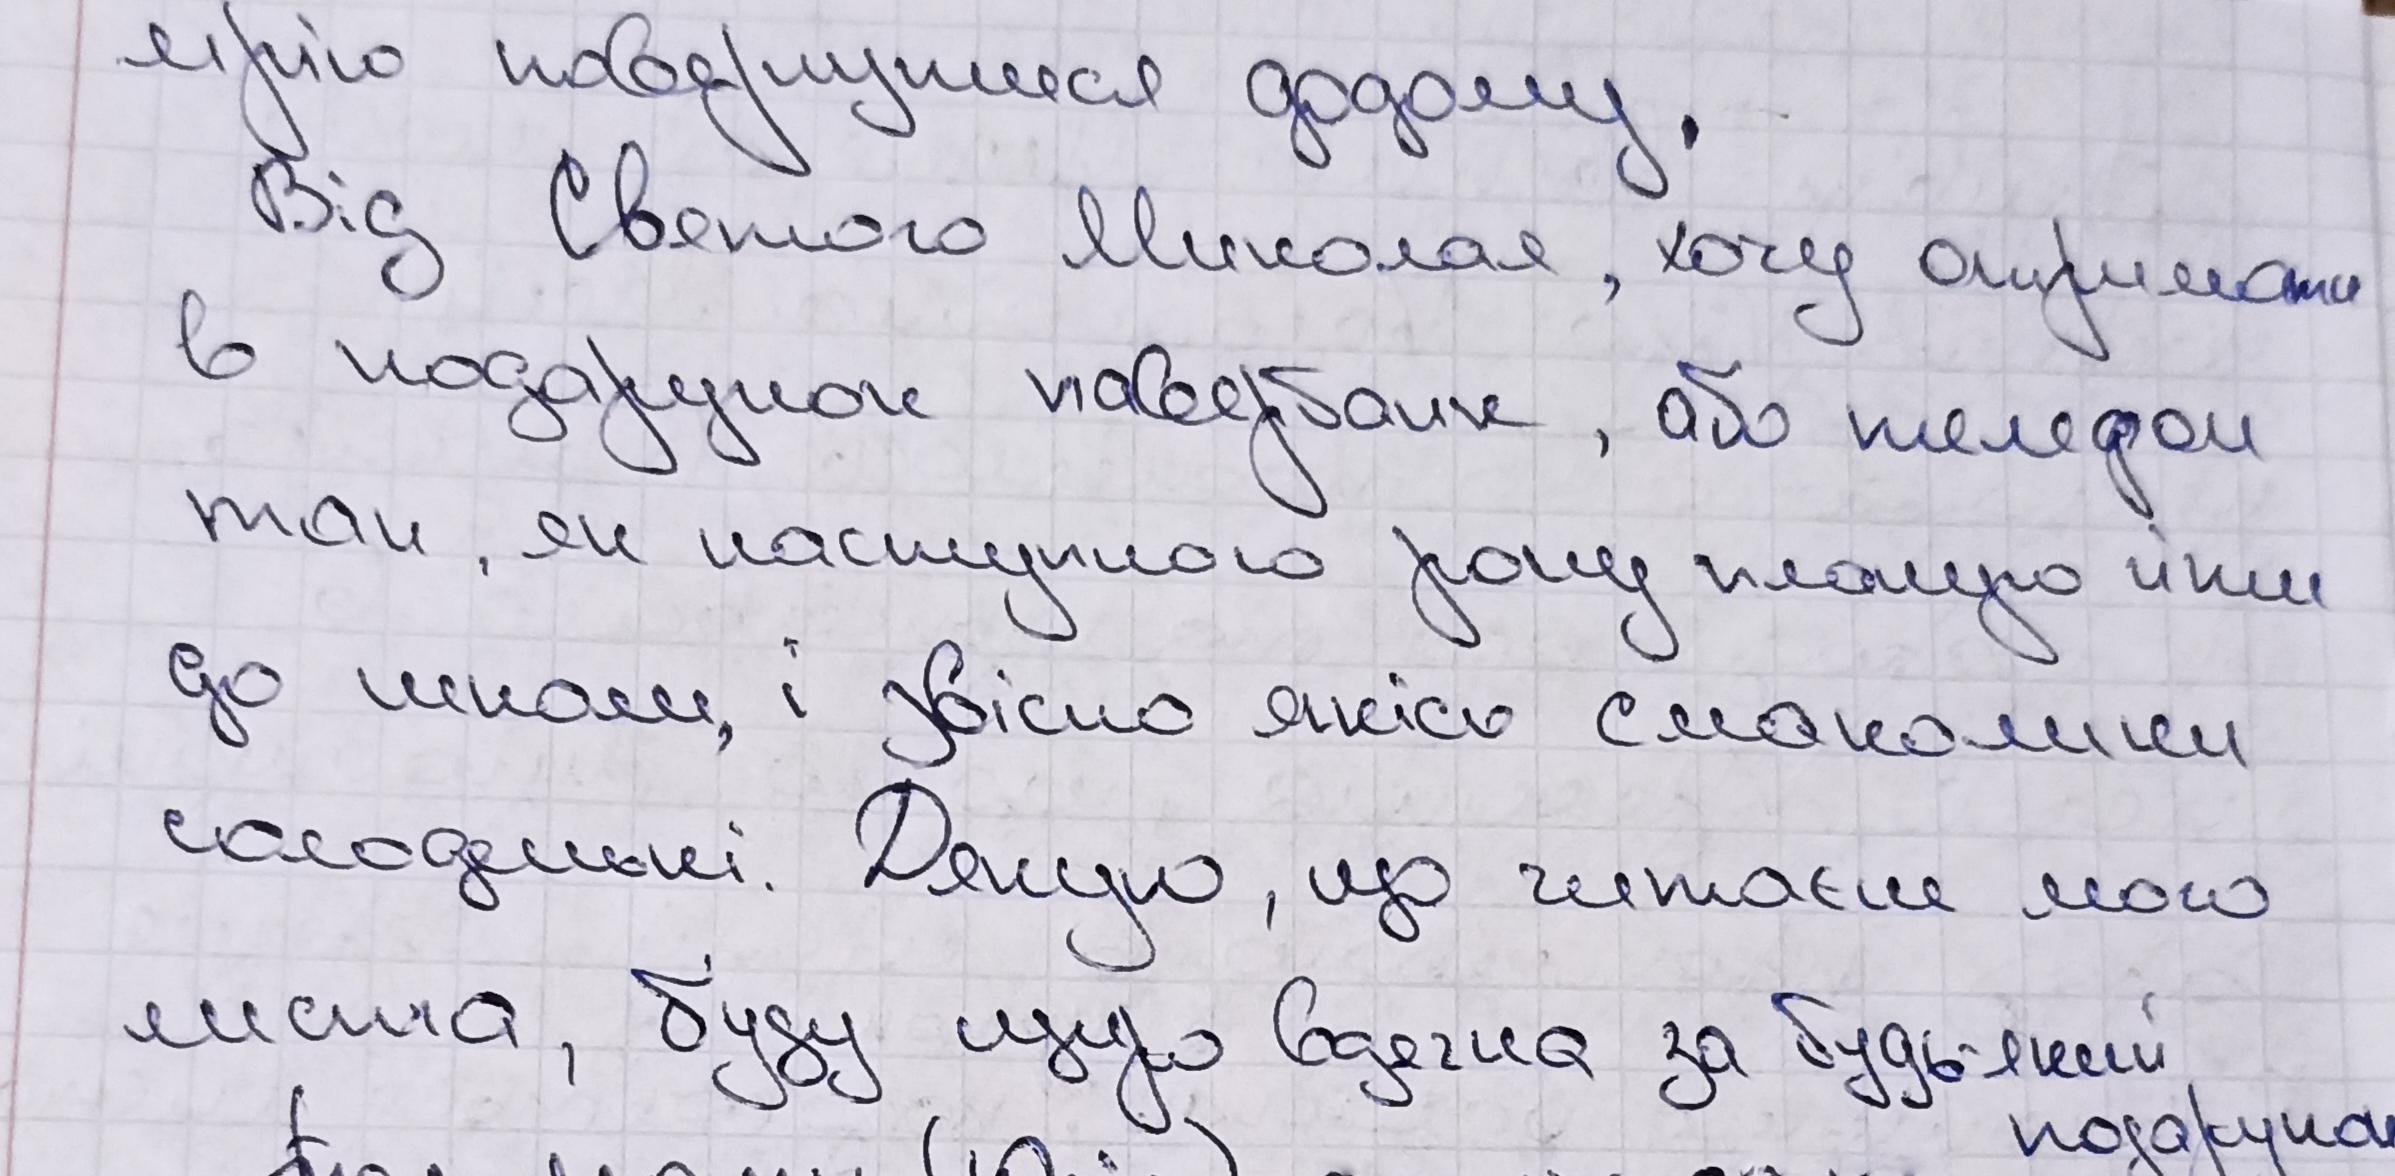 мрію повернутися додому.
Від Святого Миколая, хочу отримати
в подарунок павербанк, або телефон
так, як наступного року планую йти
до школи, і звісно якісь смаколики
солоденькі. Дякую, що читаєш мого
листа, буду щиро вдячна за будь-який
подарунок